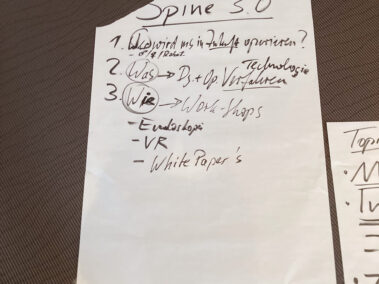 Spine 3.0
1. Wer wird uns in Zukunft operieren?
2. Was → Ds. + Op Verfahren
Technologie
3. Wie → Work-Shops
- Endoskopi
- VR
- White Paper's
Topi